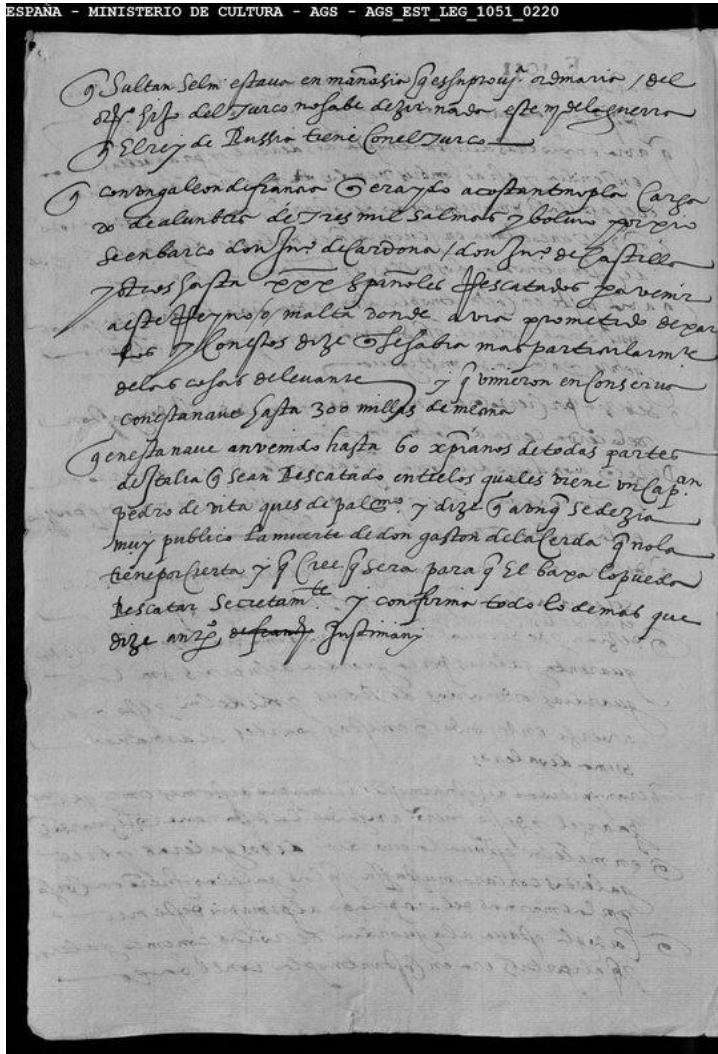 ESPAÑA - MINISTERIO DE CULTURA - AGS - AGS_EST_LEG_1051_0220
q Sultan Selin estaua en manasia q es su prouj.ª ordinaria / del
otro hijo del Turco no sabe dezir nada este nj de la guerra
q El rey de Russia tiene Con el Turco
q con vn galeon de francia q era ydo a costantinopla Carga
do de alunbes de Tres mil salmas y boluio
se enbarco don Ju.º de Cardona / don Ju.º de Castilla
y otros hasta xxx españoles Rescatados pa venir
a este Reyno o / malta donde avia prometido de
y Con estos dize q se sabra mas particularmte
de las cosas de leuante y q vinieron en Conserua
con esta naue hasta 300 millas de
q en esta naue an venido hasta 60 xpianos de todas partes
de Italia q sean Rescatado entre los quales viene vn Cap.an
pedro de vita ques de palmo. y dize q avnq se dezia
muy publico La muerte de don gaston de la Cerda q no la
tiene por Cierta y q Cree q sera para q El baxa lo pueda
Rescatar Secretamte. y confirma todo lo demas que
dize Justiniani